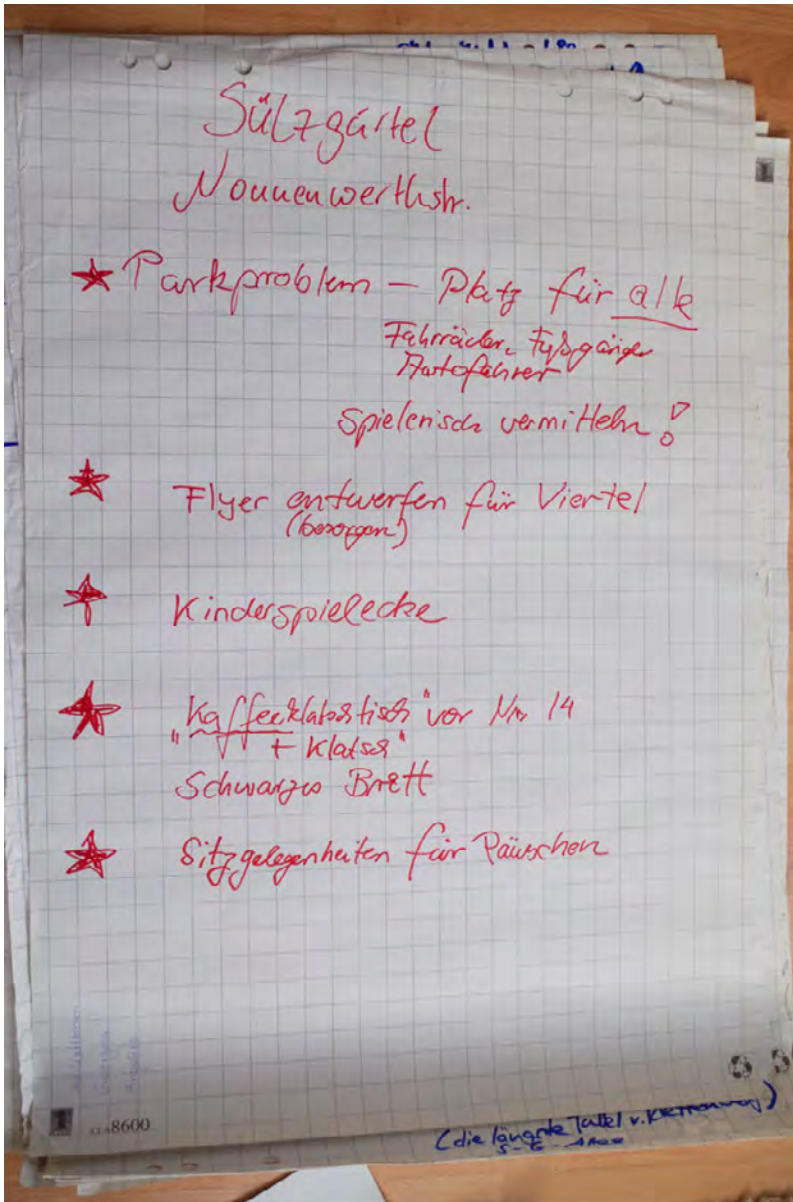 Sülzgürtel
Nonnenwerthstr.
Parkproblem – Platz für alle
Fahrräder, Fußgänger
Autofahrer
spielerisch vermitteln!
Flyer entwerfen für Viertel
(besorgen)
Kinderspielecke
"Kaffeeklatschtisch" vor Nr. 14
+ Klatsch"
Schwarzes Brett
Sitzgelegenheiten für Päuschen
8600
(die längste Tafel v.